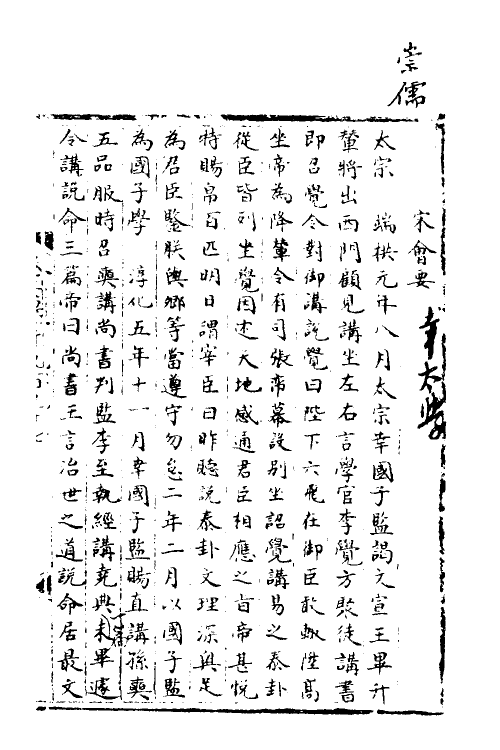 崇儒
宋會要
幸太學
太宗　端拱元年八月太宗幸國子監謁文宣王畢升
輦將出西門顧見講坐左右言學官李覺方聚徒講書
即召覺令對御講說覺曰陛下六飛在御臣敢輒陞高
坐帝為降輦令有司張帟幕設別坐詔覺講易之泰卦
從臣皆列坐覺因述天地感通君臣相應之旨帝甚悅
特賜帛百匹明日謂宰臣曰昨聽說泰卦文理深奧足
為君臣鑒朕與卿等當遵守勿怠二年二月以國子監
為國子學　淳化五年十一月幸國子監賜直講孫奭
五品服時召奭講尚書判監李至執經講堯典未畢遽
令講說命三篇帝曰尚書王言治世之道說命居最文